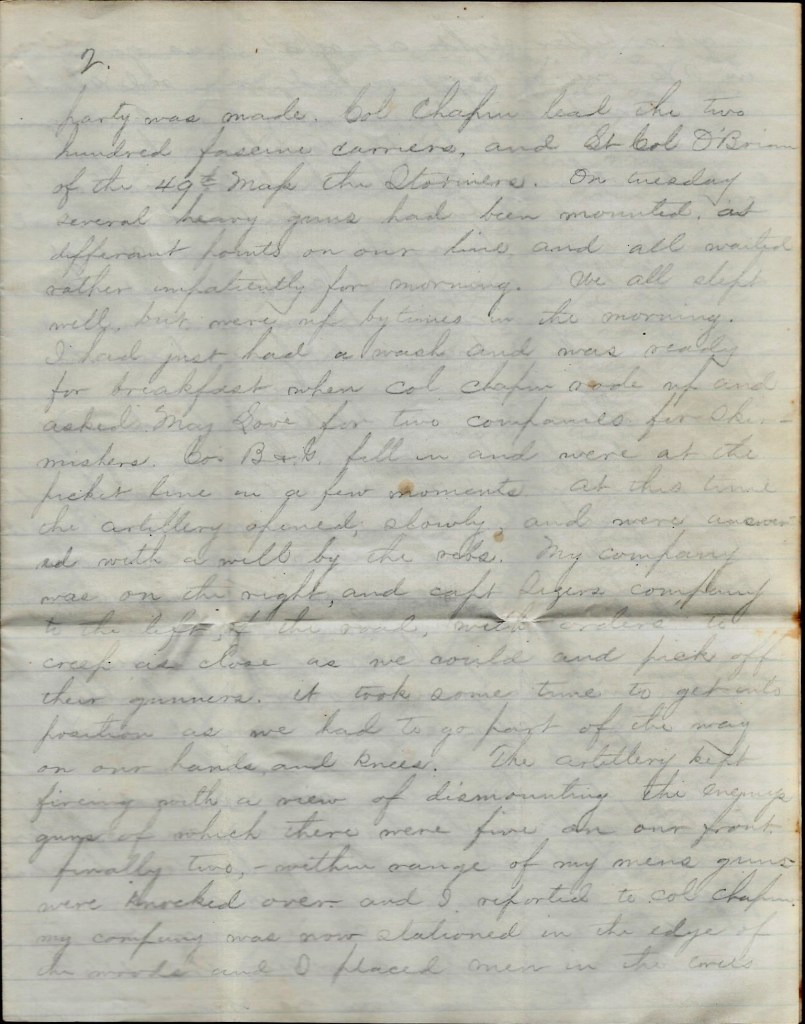 2.
party was made. Col Chapin lead the two
hundred fascine carriers, and Lt Col O'Brian
of the 49th Mass the Stormers. On tuesday
several heavy guns had been mounted, at
different points on our line and all waited
rather impatiently for morning. We all slept
well, but were up bytimes in the morning.
I had just had a wash and was ready
for breakfast when Col Chapin rode up and
asked Maj Love for two companies for Skir-
mishers. Co. B & G. fell in and were at the
picket line in a few moments. At this time
the artillery opened, slowly, and were answer-
ed with a will by the rebs. My company
was on the right, and capt company
to the left, of the road, with orders to
creep as close as we could and pick off
their gunners. it took some time to get into
position as we had to go part of the way
on our hands, and knees. The artillery kept
fireing with a view of dismounting the Enemys
guns of which there were five on our front
finally two, - within range of my mens guns -
were knocked over and I reported to Col Chapin
my company was now stationed in the edge of
the woods and I placed men in the trees